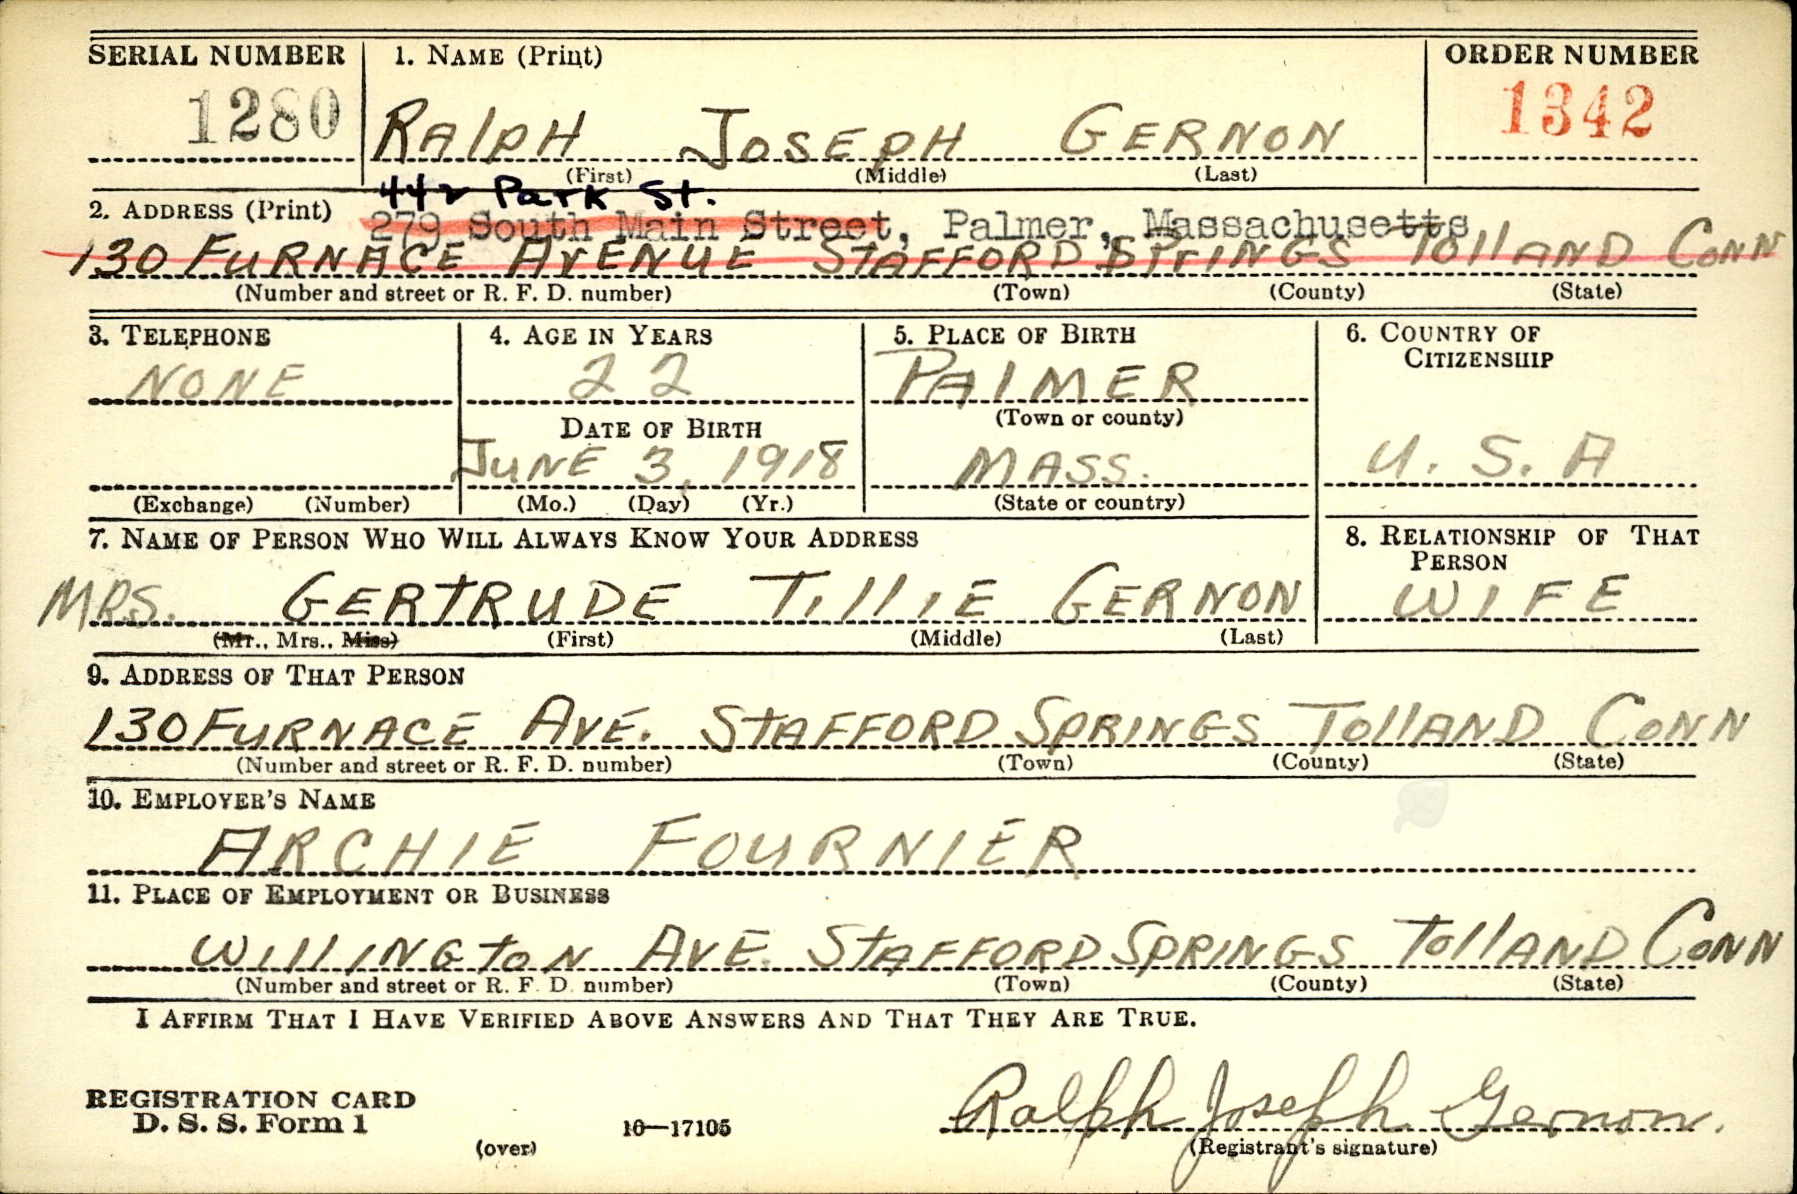 SERIAL NUMBER 1. NAME (Print) ORDER NUMBER
1280 RALPH JOSEPH GERNON 1342
(First) (Middle) (Last)
442 Park St.
2. ADDRESS (Print) 279 South Main Street, Palmer, Massachusetts
130 FURNACE AVENUE STAFFORD SPrINGS TOllAND CONN
(Number and street or R. F. D. number) (Town) (County) (State)
3. TELEPHONE 4. AGE IN YEARS 5. PLACE OF BIRTH 6. COUNTRY OF
CITIZENSHIP
NONE 22 PALMER
(Town or county)
DATE OF BIRTH
JUNE 3, 1918 MASS. U. S. A
(Exchange) (Number) (Mo.) (Day) (Yr.) (State or country)
7. NAME OF PERSON WHO WILL ALWAYS KNOW YOUR ADDRESS 8. RELATIONSHIP OF THAT
PERSON
MRS. GERTRUDE TIllIE GERNON WIFE
(Mr., Mrs., Miss) (First) (Middle) (Last)
9. ADDRESS OF THAT PERSON
130 FURNACE AVE. STAFFORD SPRINGS TOllAND CONN
(Number and street or R. F. D. number) (Town) (County) (State)
10. EMPLOYER'S NAME
ARCHIE FOURNIER
11. PLACE OF EMPLOYMENT OR BUSINESS
WIllINGTON AVE. STAFFORD SPRINGS TOllAND CONN
(Number and street or R. F. D. number) (Town) (County) (State)
I AFFIRM THAT I HAVE VERIFIED ABOVE ANSWERS AND THAT THEY ARE TRUE.
REGISTRATION CARD
D. S. S. Form 1 16—17105 Ralph Joseph Gernon.
(over) (Registrant's signature)